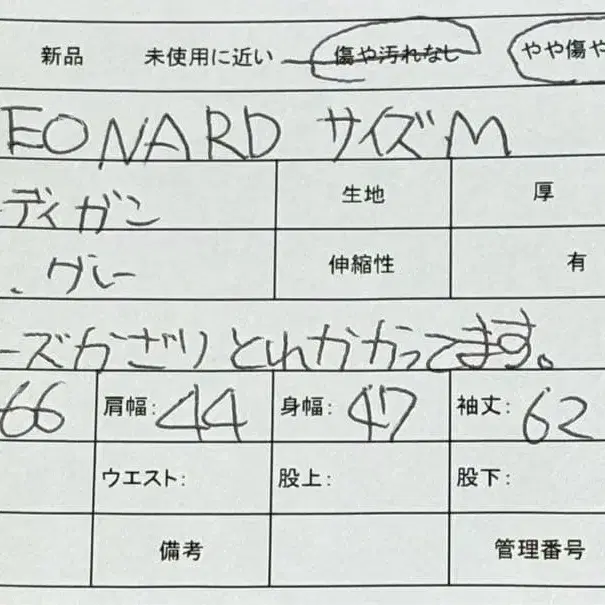 新品 未使用に近い 傷や汚れなし やや傷や
EONARD サイズM
ディガン 生地 厚
グレー 伸縮性 有
ーズかざりとれかかってます。
66 肩幅:44 身幅:47 袖丈:62
ウエスト: 股上: 股下:
備考 管理番号